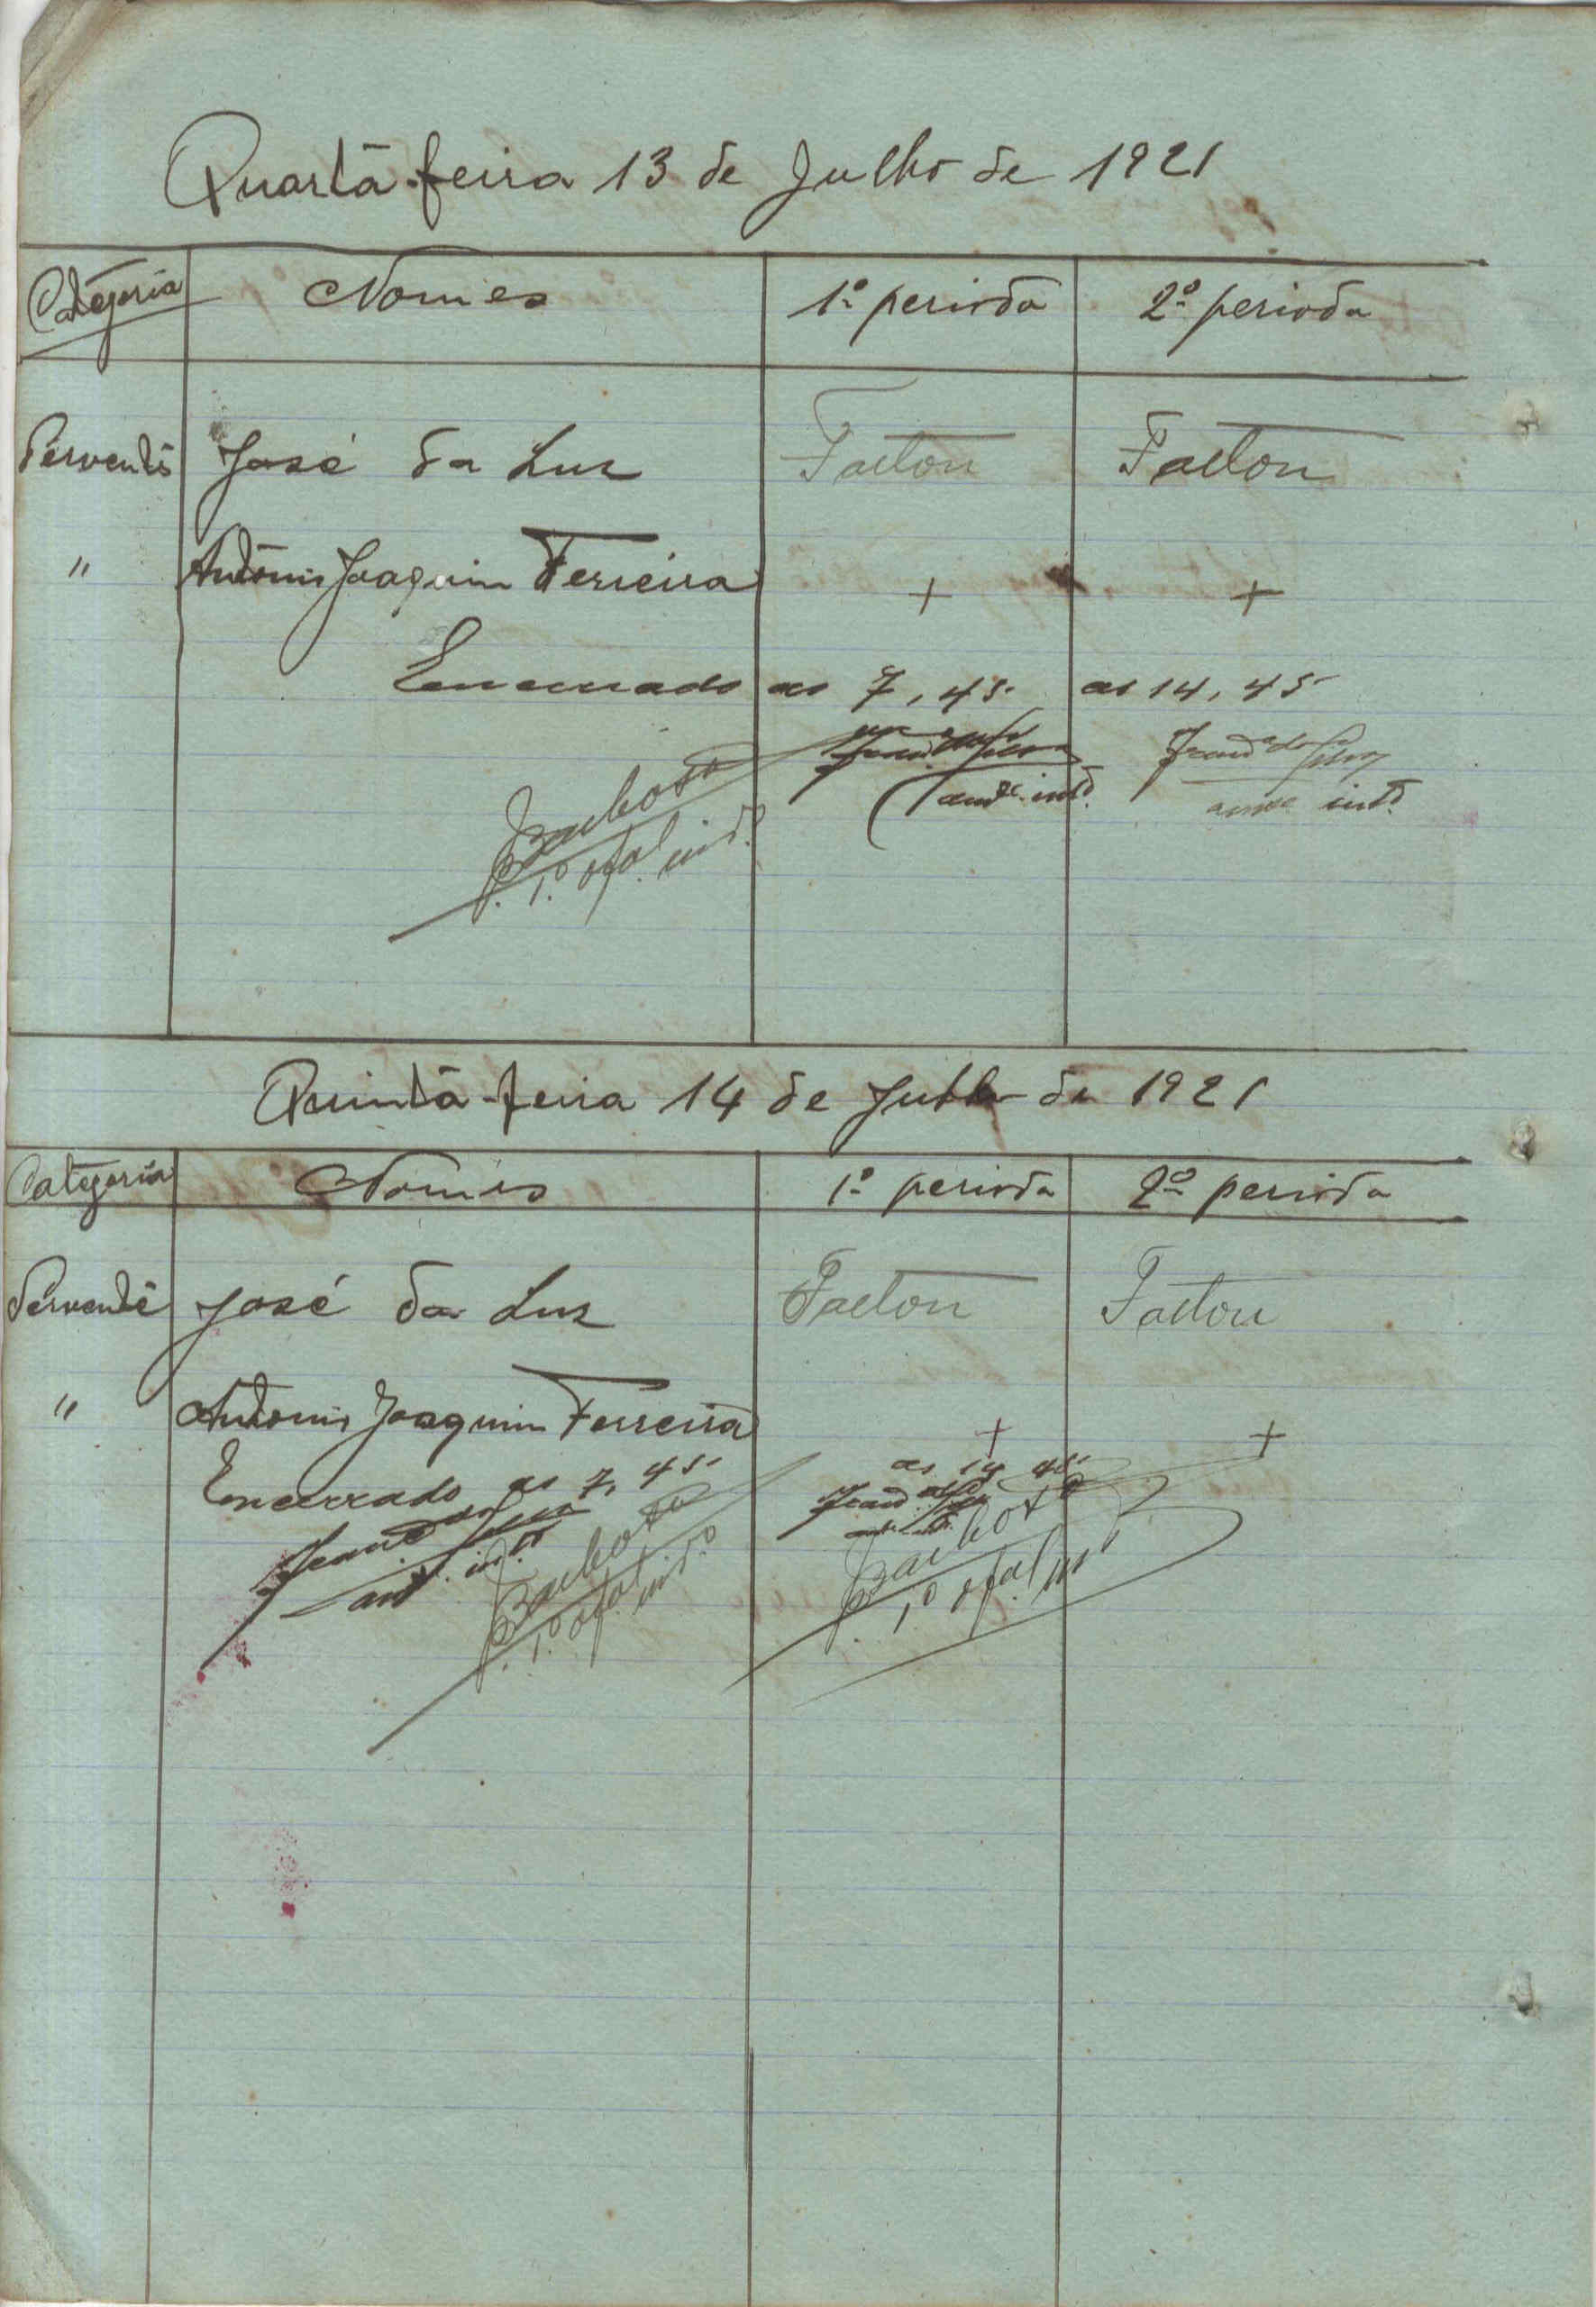 Quarta-feira 13 de Julho de 1921
Categoria Nomes 1º perioda 2º perioda
Servente José da Luz Faltou Faltou
" Antonio Joaquim Ferreira + +
Encerrado as 7,45 as 14,45
Franco da Silva Franco da Silva
int.º int.º
Barbosa
1.º ofal. int.º
Quinta-feira 14 de Julho de 1921
Categoria Nomes 1º perioda 2º perioda
Servente José da Luz Faltou Faltou
" Antonio Joaquim Ferreira + +
Encerrado as 7,45 as 14 45
int.º
Barbosa Barbosa
1.º ofal. int.º 1º ofal int